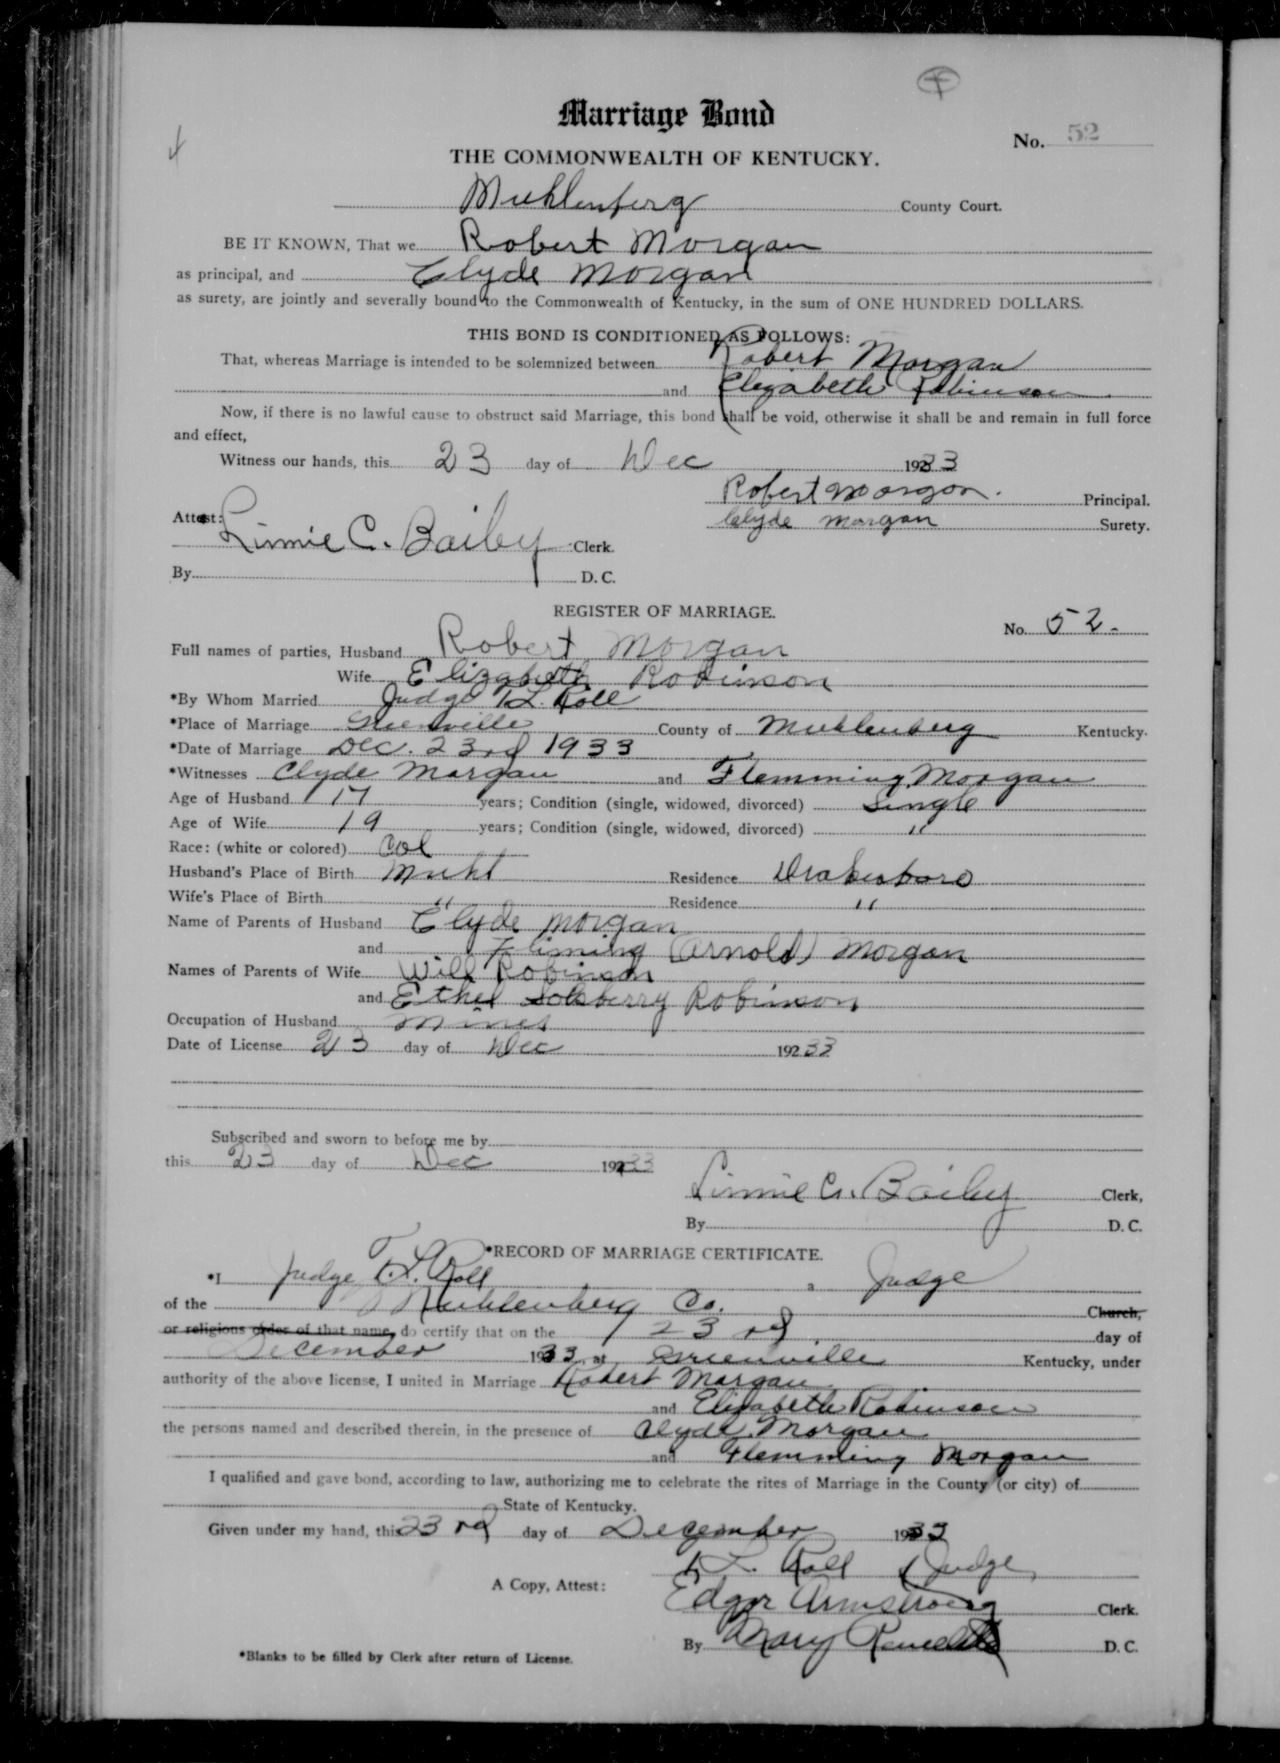 Marriage Bond
No. 52
THE COMMONWEALTH OF KENTUCKY.
Muhlenberg County Court.
BE IT KNOWN, That we Robert Morgan
as principal, and Clyde Morgan
as surety, are jointly and severally bound to the Commonwealth of Kentucky, in the sum of ONE HUNDRED DOLLARS.
THIS BOND IS CONDITIONED AS FOLLOWS:
That, whereas Marriage is intended to be solemnized between Robert Morgan
and Elizabeth Robinson
Now, if there is no lawful cause to obstruct said Marriage, this bond shall be void, otherwise it shall be and remain in full force
and effect,
Witness our hands, this 23 day of Dec 1933
Robert Morgan. Principal.
Clyde Morgan Surety.
Attest: Linnie C. Bailey Clerk.
By D. C.
REGISTER OF MARRIAGE.
No. 52.
Full names of parties, Husband Robert Morgan
Wife Elizabeth Robinson
*By Whom Married Judge T. L. Roll
*Place of Marriage Greenville County of Muhlenberg Kentucky.
*Date of Marriage Dec. 23rd 1933
*Witnesses Clyde Morgan and Flemming Morgan
Age of Husband 17 years; Condition (single, widowed, divorced) Single
Age of Wife 19 years; Condition (single, widowed, divorced) "
Race: (white or colored) Col
Husband's Place of Birth Muhl Residence Drakesboro
Wife's Place of Birth " Residence "
Name of Parents of Husband Clyde Morgan
and Fliming (Arnold) Morgan
Names of Parents of Wife Will Robinson
and Ethel Solsberry Robinson
Occupation of Husband Miner
Date of License 23 day of Dec 192 33
Subscribed and sworn to before me by
this 23 day of Dec 1933
Linnie C. Bailey Clerk,
By D. C.
*RECORD OF MARRIAGE CERTIFICATE.
*I Judge T. L. Roll a Judge
of the Muhlenberg Co. Church,
or religious order of that name, do certify that on the 23rd day of
December 1933 at Greenville Kentucky, under
authority of the above license, I united in Marriage Robert Morgan
and Elizabeth Robinson
the persons named and described therein, in the presence of Clyde Morgan
and Flemming Morgan
I qualified and gave bond, according to law, authorizing me to celebrate the rites of Marriage in the County (or city) of
State of Kentucky.
Given under my hand, this 23rd day of December 1933
T. L. Roll Judge
A Copy, Attest: Edgar Armstrong Clerk.
By Mary D. C.
*Blanks to be filled by Clerk after return of License.